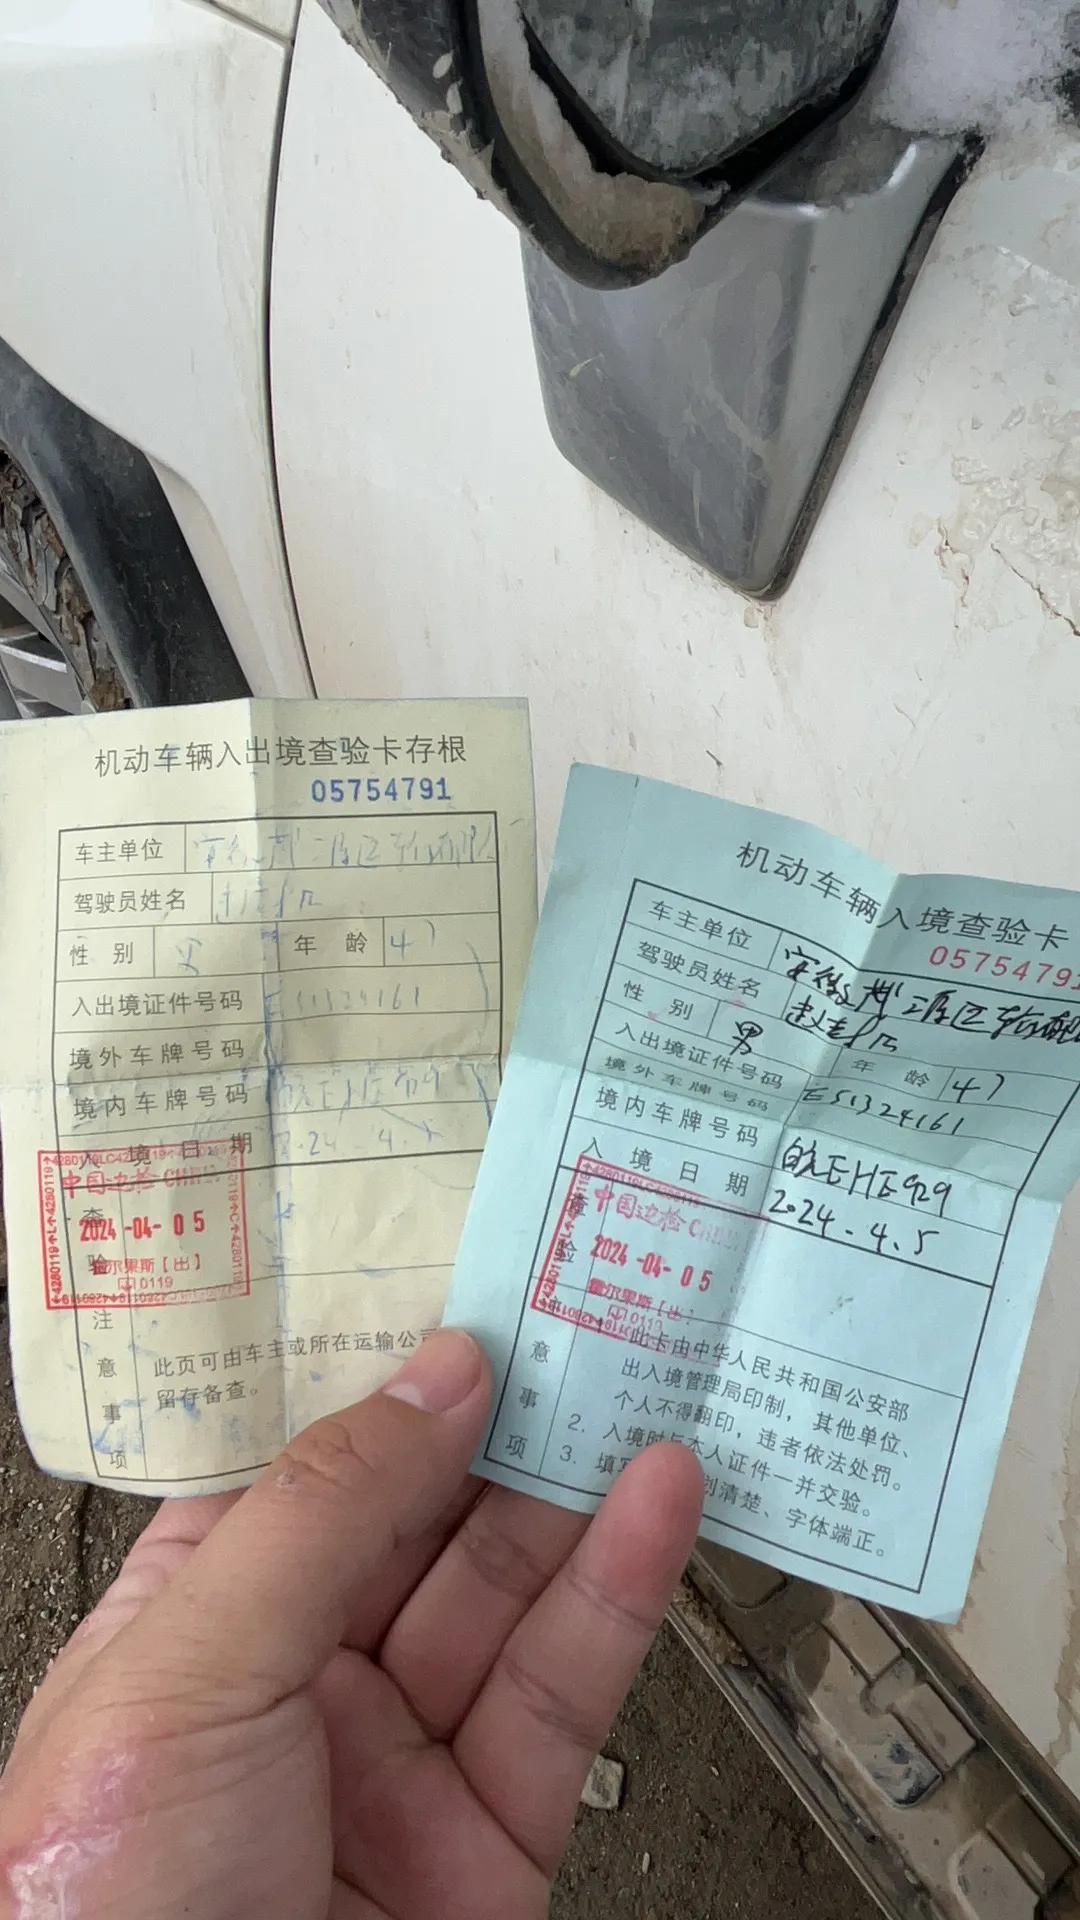 机动车辆入出境查验卡存根
05754791
车主单位
驾驶员姓名
性别 男 年龄 47
入出境证件号码 E51324161
境外车牌号码
境内车牌号码 皖EHE929
入境日期 2024.4.5
查验
中国边检 CHINA
2024-04-05
霍尔果斯［出］
0119
注意事项
此页可由车主或所在运输公司
留存备查。
机动车辆入境查验卡
05754791
车主单位 安徽
驾驶员姓名
性别 男 年龄 47
入出境证件号码 E51324161
境外车牌号码
境内车牌号码 皖EHE929
入境日期 2024.4.5
查验
中国边检 CHINA
2024-04-05
霍尔果斯［出］
0119
注意事项
此卡由中华人民共和国公安部
出入境管理局印制，其他单位、
个人不得翻印，违者依法处罚。
2. 入境时与本人证件一并交验。
3. 填 清楚、字体端正。